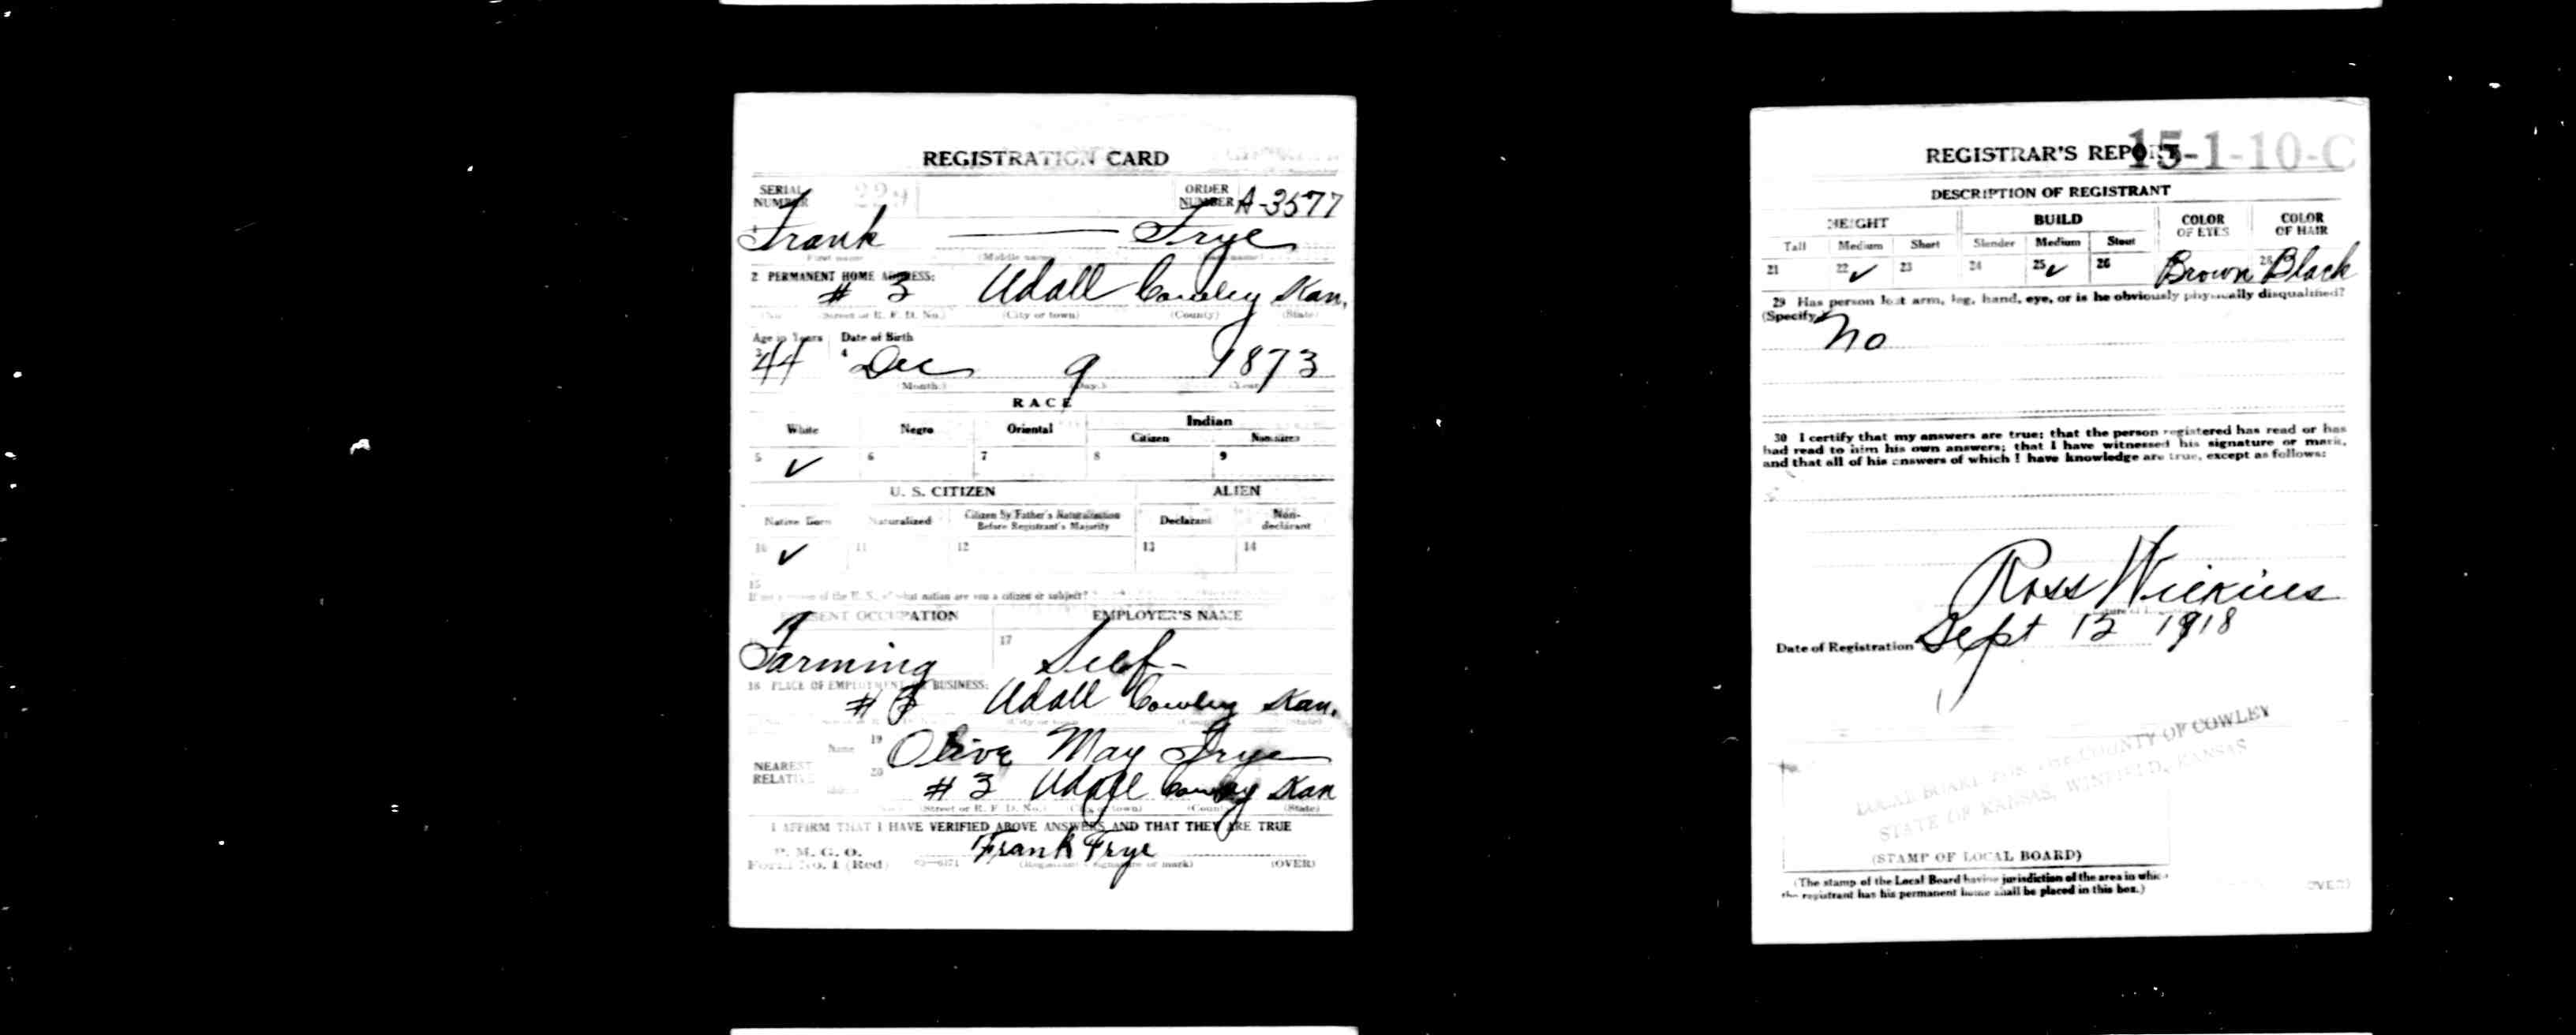 REGISTRATION CARD
SERIAL NUMBER 229 ORDER NUMBER A-3577
Frank Frye
First name (Middle name)
2 PERMANENT HOME ADDRESS:
# 3 Udall Cowley Kan.
(Street or R. F. D. No.) (City or town) (County) (State)
Age in Years Date of Birth
3 44 4 Dec 9 1873
(Month.) (Day.) (Year.)
RACE
White Negro Oriental Indian
Citizen Noncitizen
5 ✓ 6 7 8 9
U. S. CITIZEN ALIEN
Native Born Naturalized Citizen by Father's Naturalization Before Registrant's Majority Declarant Non-declarant
10 ✓ 11 12 13 14
15
If not a citizen of the U. S., of what nation are you a citizen or subject?
PRESENT OCCUPATION EMPLOYER'S NAME
17
Farming Self-
18 PLACE OF EMPLOYMENT OR BUSINESS:
# 3 Udall Cowley Kan.
(City or town) (County) (State)
NEAREST RELATIVE
Name 19 Olive May Frye
20 # 3 Udall Cowley Kan
(Street or R. F. D. No.) (City or town) (County) (State)
I AFFIRM THAT I HAVE VERIFIED ABOVE ANSWERS AND THAT THEY ARE TRUE
P. M. G. O.
Form No. 1 (Red) Frank Frye
(Registrant's signature or mark) (OVER)
REGISTRAR'S REPORT 15-1-10-C
DESCRIPTION OF REGISTRANT
HEIGHT BUILD COLOR OF EYES COLOR OF HAIR
Tall Medium Short Slender Medium Stout
21 22 ✓ 23 24 25 ✓ 26 Brown 28 Black
29 Has person lost arm, leg, hand, eye, or is he obviously physically disqualified?
(Specify.)
No
30 I certify that my answers are true; that the person registered has read or has
had read to him his own answers; that I have witnessed his signature or mark,
and that all of his answers of which I have knowledge are true, except as follows:
Ross Wilkins
Date of Registration Sept 12 1918
LOCAL BOARD FOR THE COUNTY OF COWLEY
STATE OF KANSAS, WINFIELD, KANSAS
(STAMP OF LOCAL BOARD)
(The stamp of the Local Board having jurisdiction of the area in which
the registrant has his permanent home shall be placed in this box.)
(OVER)